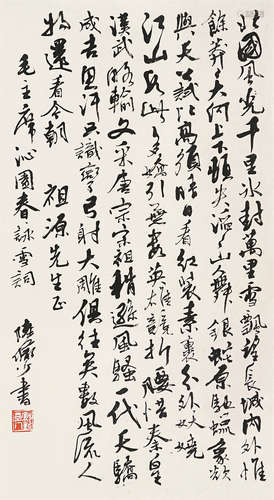 北國風光千里冰封萬里雪飄望長城內外惟
餘莽莽大河上下頓失滔滔山舞銀蛇原馳蠟象欲
與天公試比高須晴日看紅裝素裹分外妖嬈
江山如此多嬌引無數英雄競折腰惜秦皇
漢武略輸文采唐宗宋祖稍遜風騷一代天驕
成吉思汗只識彎弓射大雕俱往矣數風流人
物還看今朝 祖源先生正
毛主席沁園春詠雪詞
書